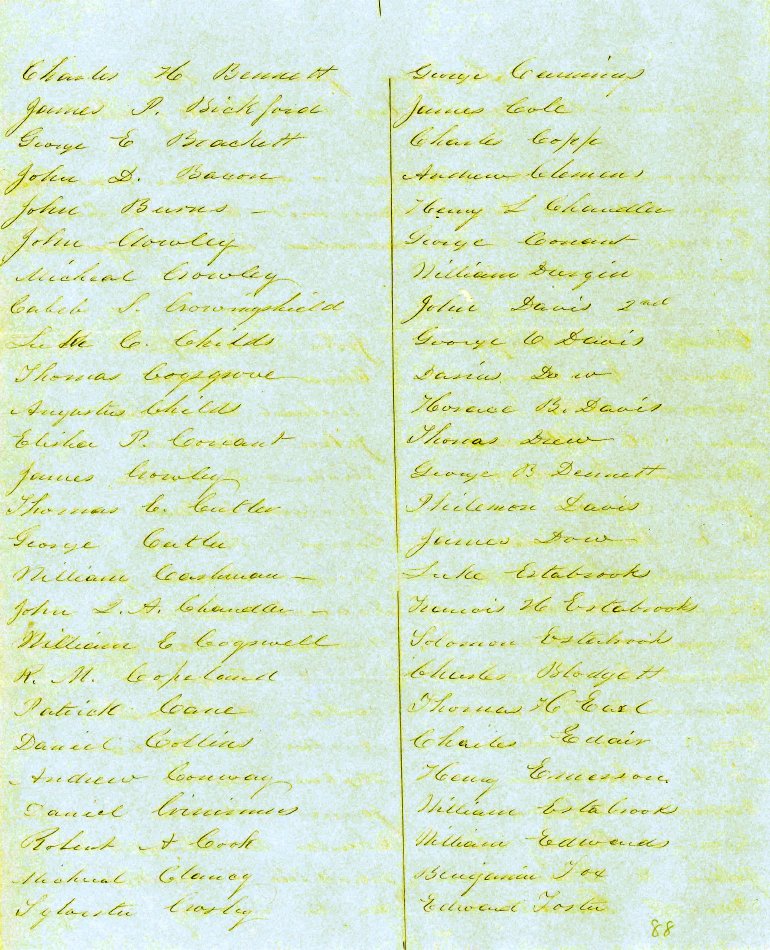 Charles H Bennett
James P. Bickford
George E Brackett
John D. Bacon
John Burns -
John Crowley
Micheal Crowley
Caleb S. Crowningshield
Luke C. Childs
Thomas Cogsgrove
Augustus Childs
Elisha P. Conant
James Crowley
Thomas E. Cutler
George Cutler
William Cashman -
John L. A. Chandler -
William E Cogswell
R. M. Copeland
Patrick Cane
Daniel Collins
Andrew Conway
Daniel
Robert A Cook
Micheal Clancy
Sylvester Crosby
George Cummings
James Cole
Charles Copp
Andrew Clemens
Henry L Chandler
George Conant
William Durgin
John Davis 2nd
George C Davis
Darius Dow
Horace B. Davis
Thomas Drew
George B Dennett
Philemon Davis
James Dow
Luke Estabrooks
Francis H Estabrooks
Solomon Estabrook
Charles Blodgett
Thomas H Earl
Charles Edair
Henry Emerson
William Estabrooks
William Edwards
Benjamin Fox
Edward Foster
88